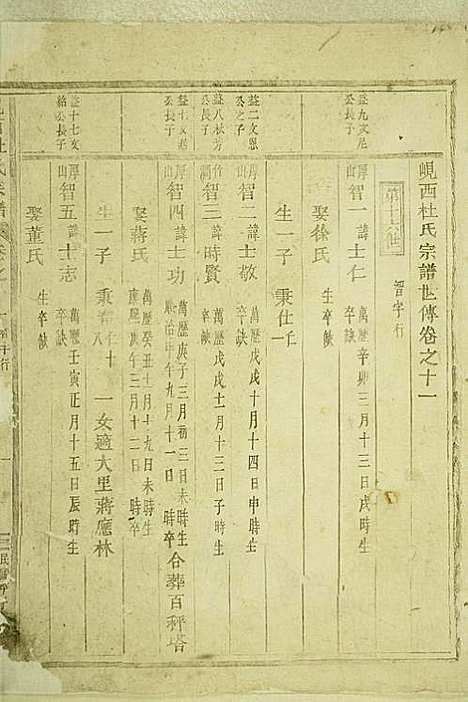 峴西杜氏宗譜世傳卷之十一
第十七世
智字行
益九文尼公長子
厚山
智一諱士仁
萬歷辛卯三月十三日戌時生
卒缺
娶徐氏
生卒缺
生一子
秉仕
益二文恩公之子
厚山
智二諱士敬
萬歷戊戌十月十四日申時生
卒缺
益八秋芳公長子
智三諱時賢
萬歷戊戌十一月十三日子時生
益十文
公長子
厚山
智四諱士功
萬歷庚子三月初三日未時生
順治甲午九月十一日時卒
合葬百秤塔
娶蔣氏
萬歷癸丑十一月十九日未時生
康熙庚午三月十二日時卒
生一子
秉
一女適大里蔣應林
益十七文給公長子
厚山
智五諱士志
萬歷壬寅正月十五日辰時生
卒缺
娶董氏
生卒缺